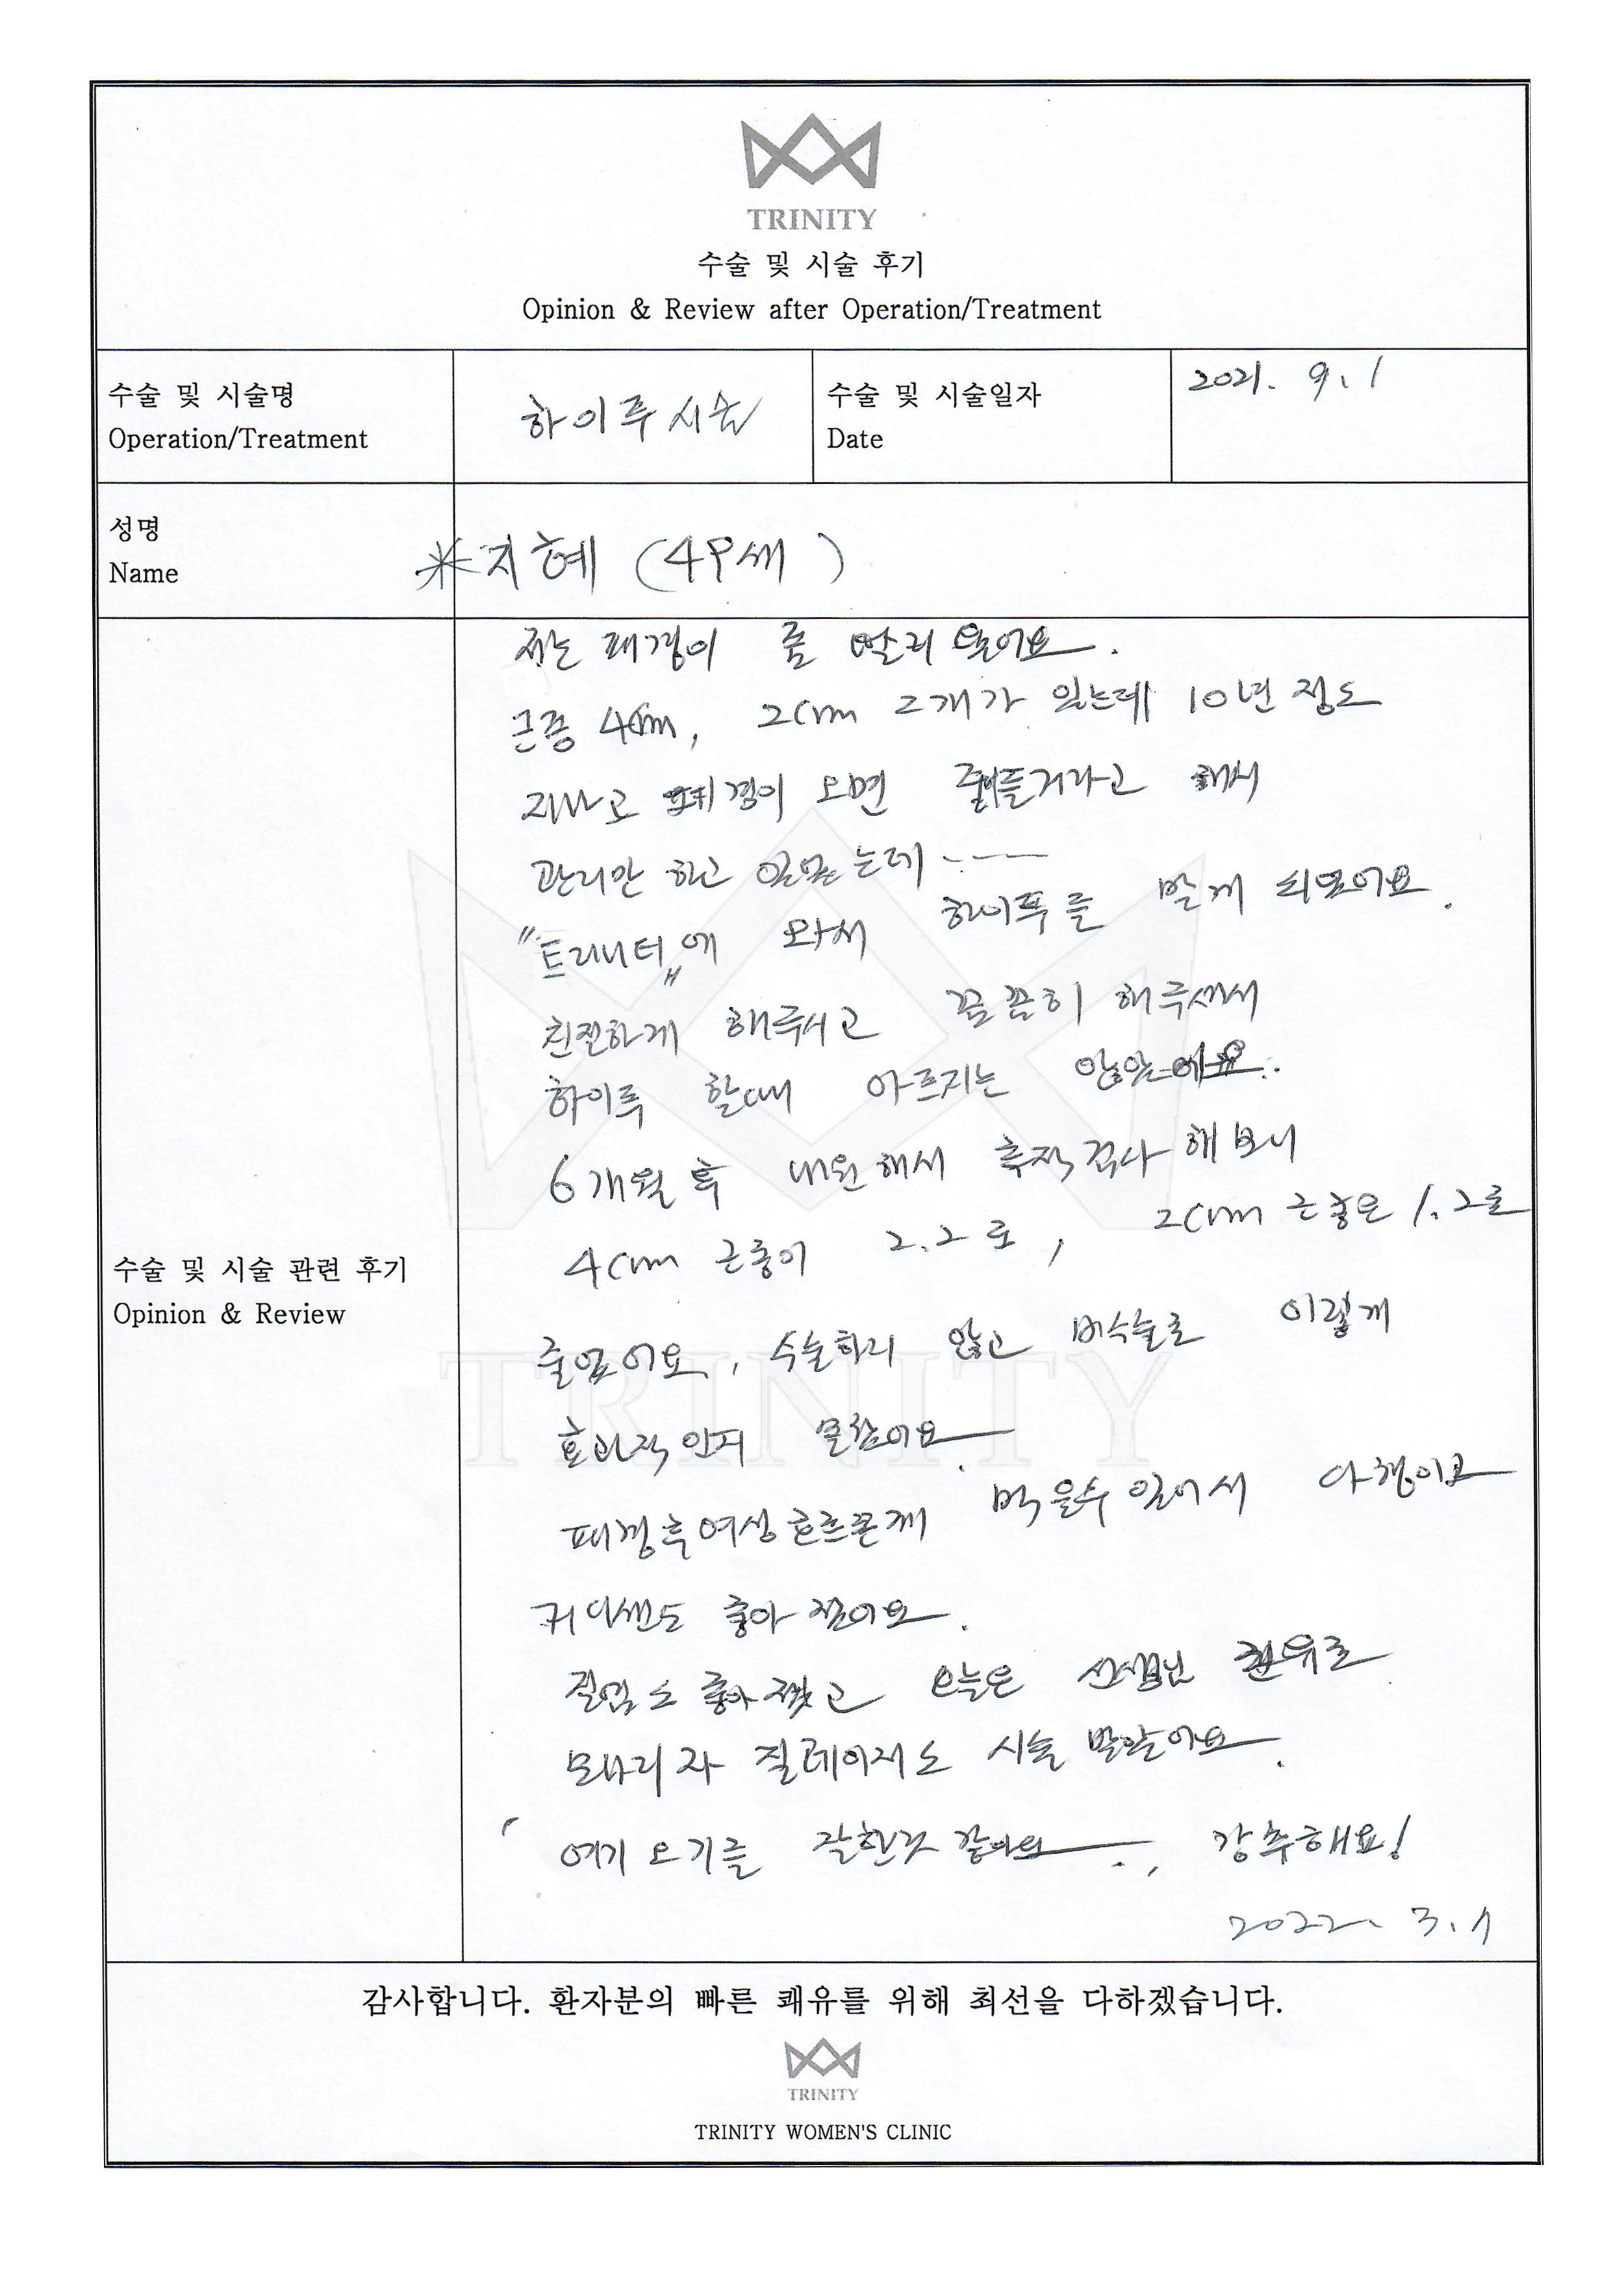 TRINITY
수술 및 시술 후기
Opinion & Review after Operation/Treatment
수술 및 시술명
Operation/Treatment
하이푸시술
수술 및 시술일자
Date
2021. 9. 1
성명
Name
*지혜 (49세 )
수술 및 시술 관련 후기
Opinion & Review
저는 폐경이 좀 빨리 왔어요.
근종 4cm, 2cm 2개가 있는데 10년 정도
지나고 폐경이 오면 줄어들거라고 해서
관리만 하고 있었는데 -----
"트리니티"에 와서 하이푸를 받게 되었어요.
친절하게 해주시고 꼼꼼히 해주셔서
하이푸 할때 아프지는 않았어요..
6개월 후 내원해서 추적검사 해보니
4cm 근종이 2.2로, 2cm 근종은 1.2로
줄었어요, 수술하지 않고 비수술로 이렇게
효과적인지 몰랐어요.
폐경후 여성호르몬제 먹을수 있어서 다행이고
컨디션도 좋아졌어요.
질염도 좋아졌고 오늘은 선생님 권유로
모나리자 질레이저도 시술 받았어요.
여기 오기를 잘한것 같아요., 강추해요!
2022. 3. 1
감사합니다. 환자분의 빠른 쾌유를 위해 최선을 다하겠습니다.
TRINITY
TRINITY WOMEN'S CLINIC
TRINITY